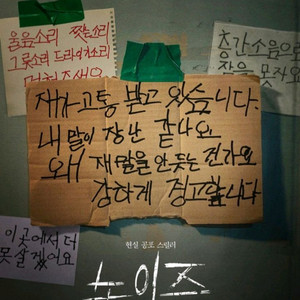 움음소리 찢는소리
그릇소리 드라이소리
멈춰주세요
층간소음으로
잠을 못자요
재가 고통 받고 있습니다.
내 말이 장난 같나요
왜 재말을 안듣는 건가요
강하게 경고합니다
이곳에서 더
못살겠어요
현실 공포 스릴러
노이즈